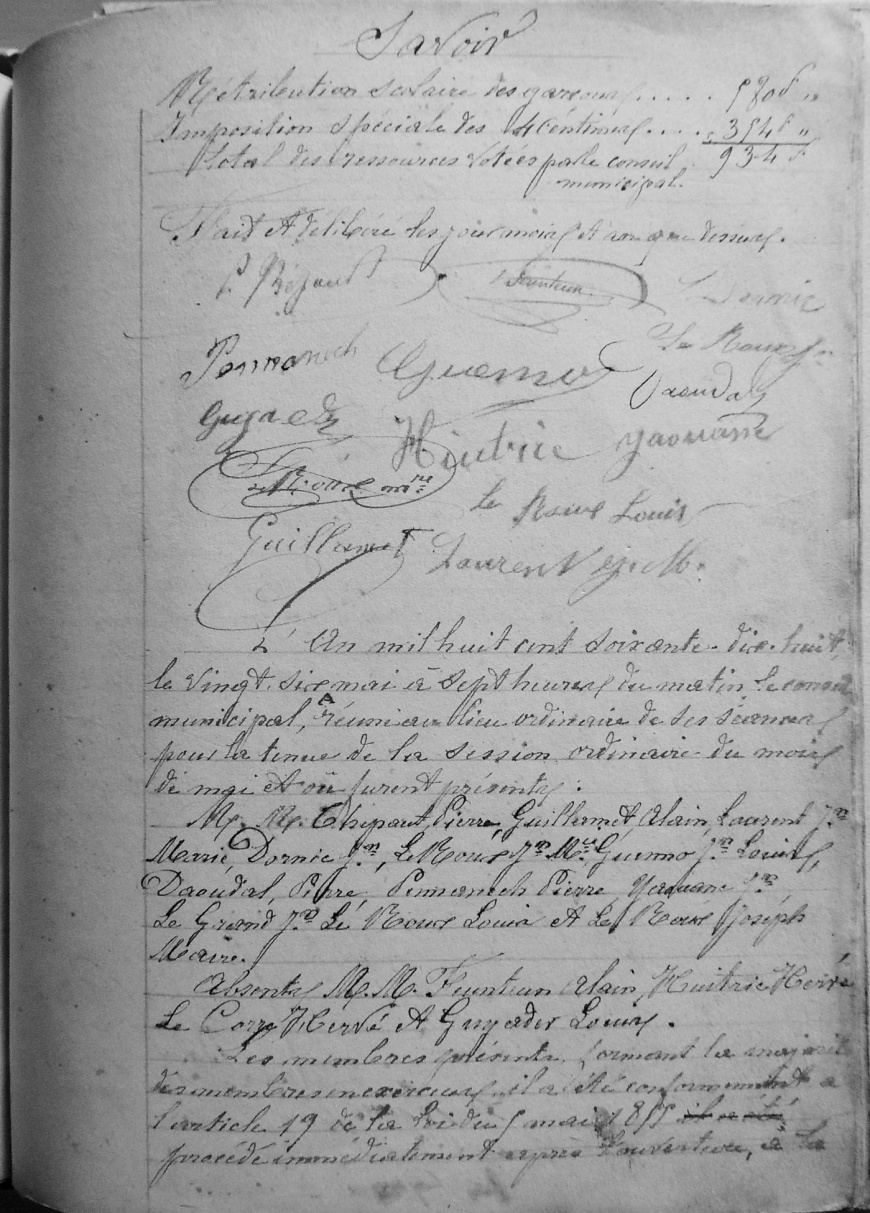 Savoir
Rétribution scolaire des garçons..... 580f "
Imposition spéciale des 4 Centimes.... 354f "
total des ressources votées par le conseil 934f
municipal.
Fait et délibéré les jour mois et an que dessus.
Feunteun Dornic
Pennanech Guenno Le Roux Jn
Daoudal
Guyader Huitric Yaouanc
Le Roux, mre
le Roux Louis
Guillamet Laurent J. M.
L'An mil huit cent soixante-dix-huit,
le vingt-six mai à sept heures du matin le conseil
municipal, réuni au lieu ordinaire de ses séances
pour la tenue de la session ordinaire du mois
de mai et où furent présents :
M. M. Thépaut Pierre, Guillamet Alain, Laurent Jn
Marie, Dornic Jn, Le Roux Jn Mie Guenno Jn Louis,
Daoudal, Pierre, Pennanech Pierre Yaouanc Jn
Le Grand Jn Le Roux Louis et Le Roux Joseph
Maire.
Absents M. M. Feunteun Alain, Huitric Hervé
Le Corre Hervé et Guyader Louis.
Les membres présents formant la majorité
des membres en exercice, il a été conformément à
l'article 19 de la loi du 5 mai 1855 il a été
procédé immédiatement après l'ouverture, à la